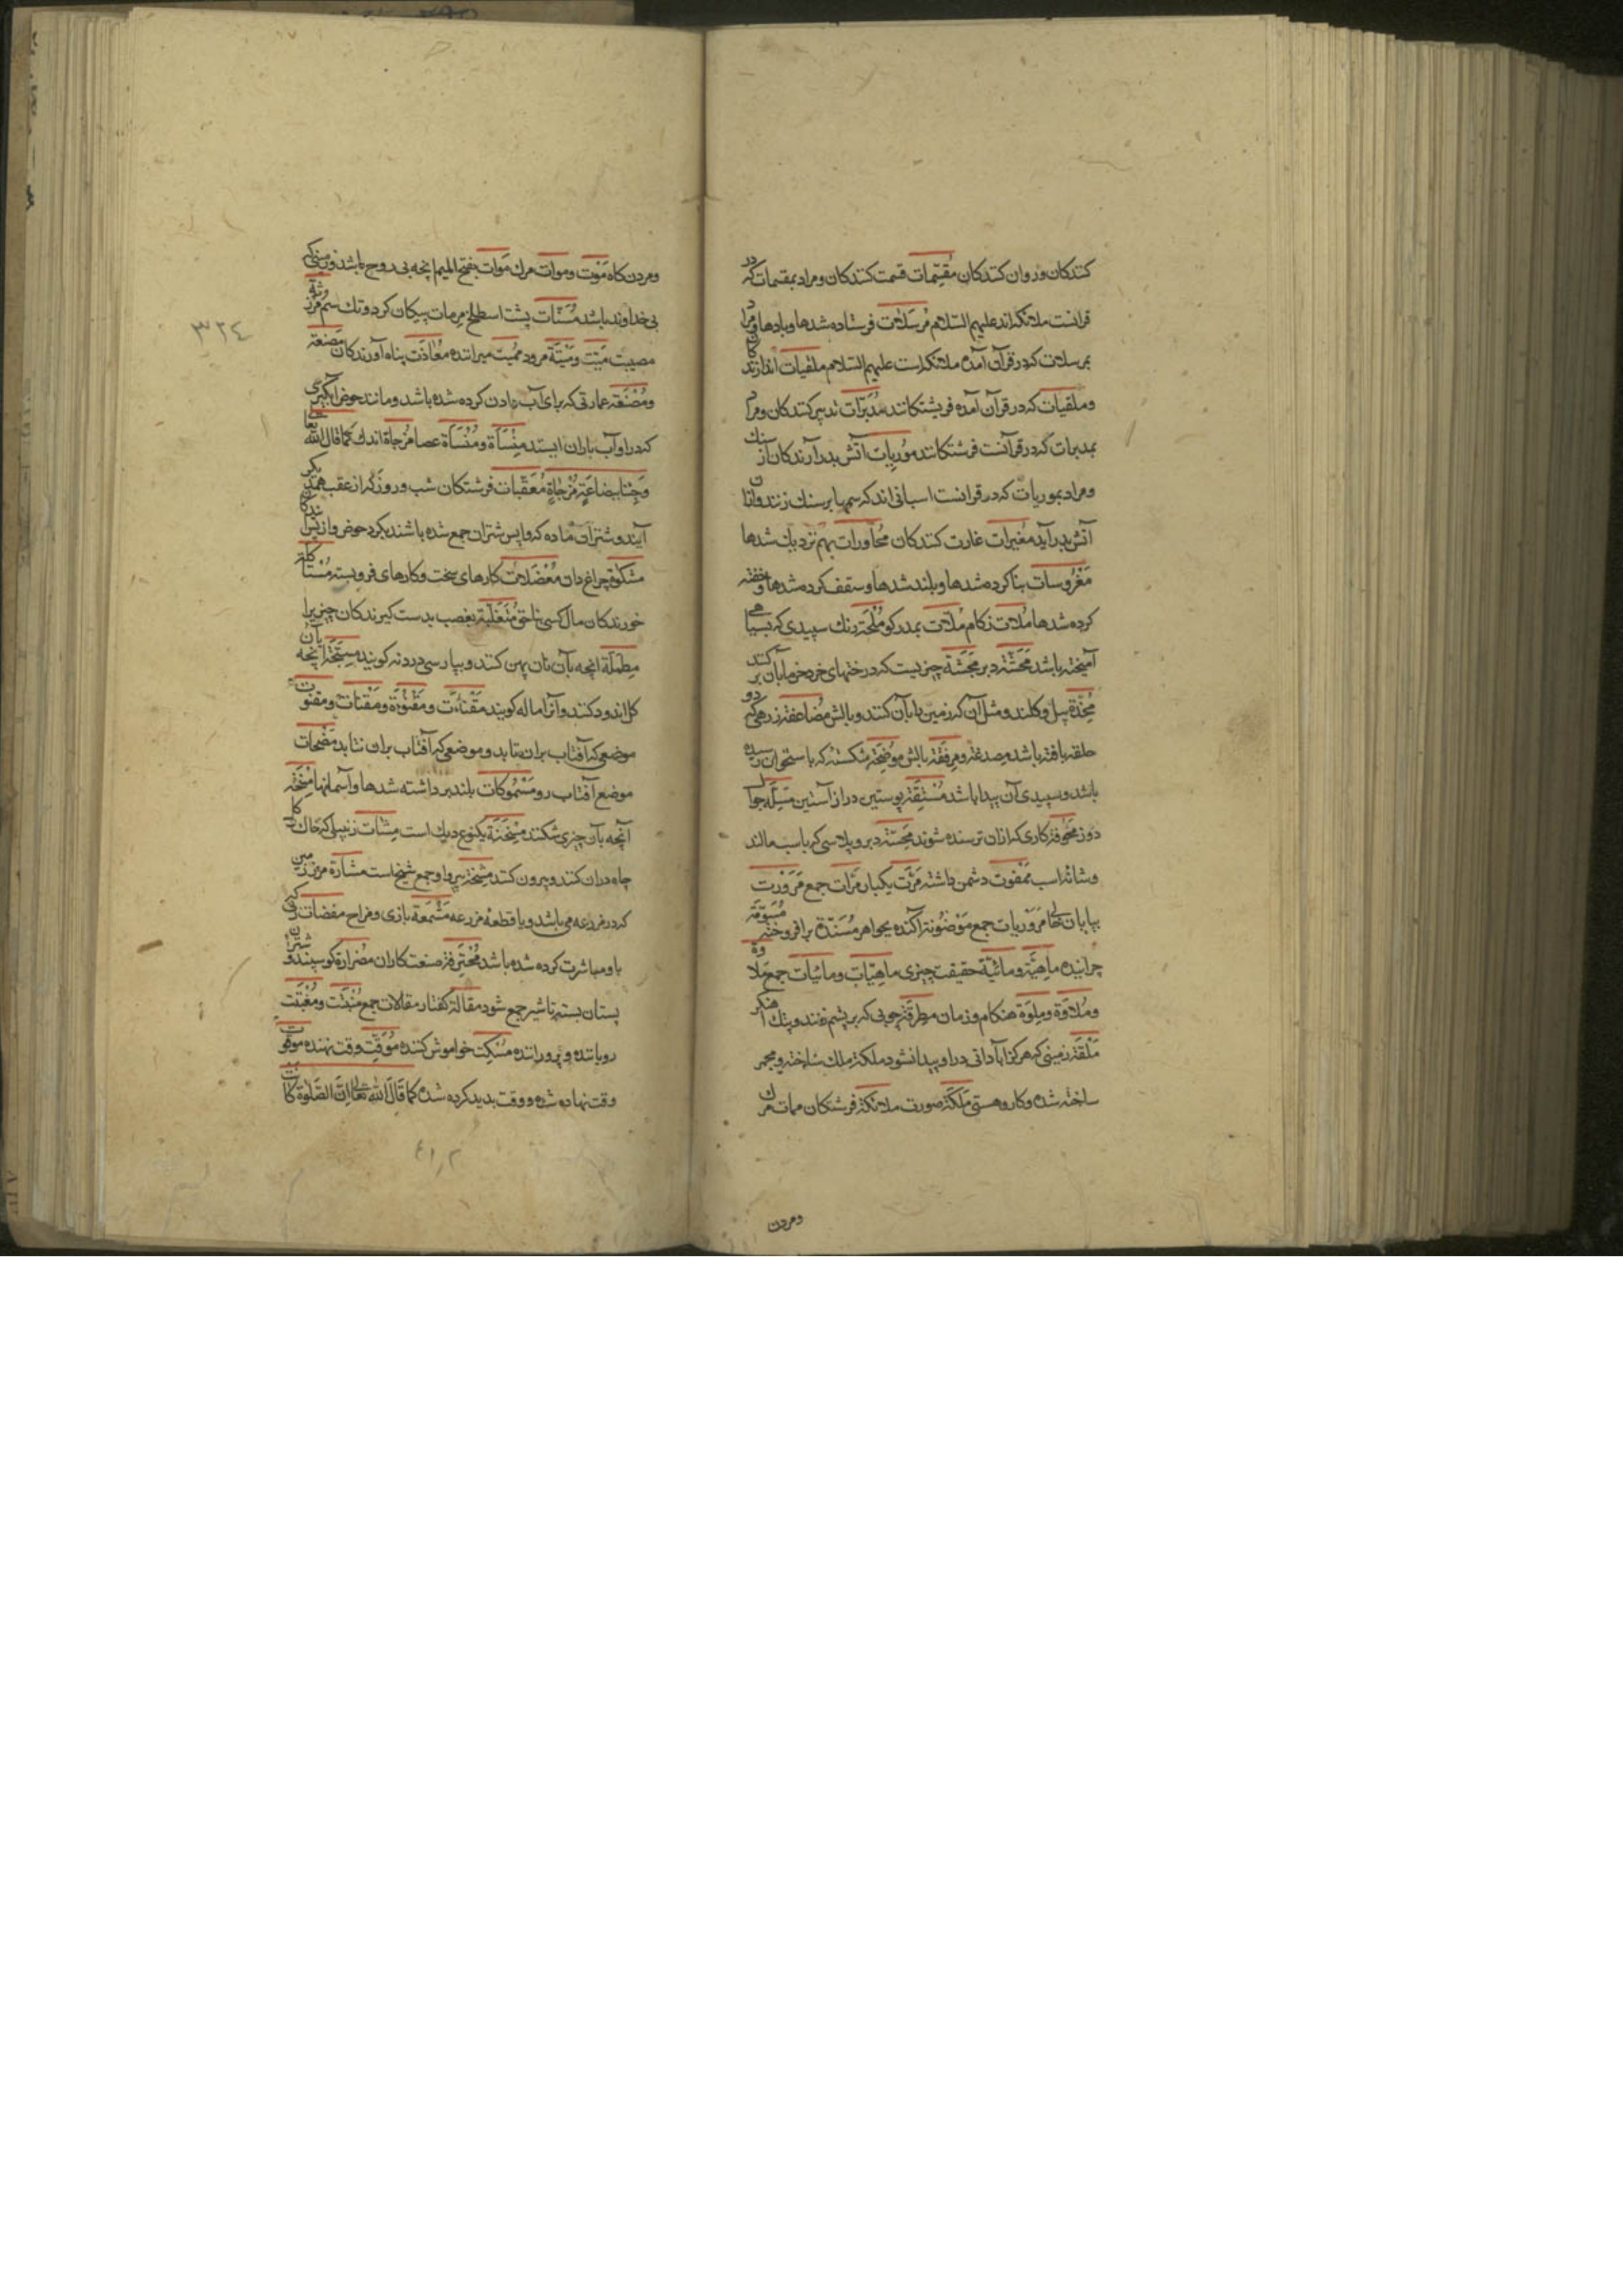 کنندکان و روان کنندکان مُقَسِّمات قسمت کنندکان و مراد بمقسمات که در
قرانست ملائکه اند علیهم السّلام مُرسَلات فرستاده شدها و بادها و مراد
بمرسلات که در قرآن آمده ملائکه است علیهم السلام ملقیات اندازندکان
و ملقیات که در قرآن آمده فریشتکانند مُدَبِّرات تدبیر کنندکان و مراد
بمدبرات که در قرآنست فرشتکانند مُورِیات آتش بدر آرندکان از سنک
و مراد بموریات که در قرانست اسبانی اند که سم را بر سنک زنند و ازان
آتش بدر آید مُغیرات غارت کنندکان مُجاورات بهم نزدیک شدها
مَعْرُوسات بنا کرده شدها و بلند شدها و سقف کرده شدها و خفته
کرده شدها مُلات زکام مُلآت بمدر کو مُلْحَة رنک سپیدی که بسیاهی
آمیخته باشد مَحَشَّة دبر مَجَثَّة چیزیست که درختهای خرد خرما بآن برکنند
مِخَدَّة بیل و کلند و مثل آن که زمین را بآن کنند و بالش مُضاعفة زرهی که دو
حلقه بافته باشد مِصدغة و مِرفَقَة بالش مُوضِحَة شکستنه که باستخوان رسیده
باشد و سپیدی آن پیدا باشد مُسْتقة پوستین دراز آستین مِسَلَّه جوال
دوز مَخُوفة کاری که ازان ترسنده شوند مِحَسَّة دبر و پلاسی که باسب مالند
و شانه اسب مَمْقوت دشمن داشته مَرَّت یکبار مَرّات جمع مَرَوْرت
بیابان خالی مَرَوْریات جمع مَوْضُونة آکنده بجواهر مُسَنَّدة برافروخته مُسَوّمَة
چراینده ماهِیَّة و مائیَّة حقیقت چیزی ماهِیّات و مائیات جمع مَلاوَة
و مُلاوَة و مِلوَة هنکام و زمان مِطرقَة چوبی که بر پشم زنند و پتک آهنکر
مَلَقَة زمینی که هرکز آبادانی در او پیدا نشود ملکة ملک ساخته و مجمر
ساخته شده و کار و هستی مَلَکَة صورت ملائکة فرشتکان ممات مرک
و مردن
و مردن کاه مَوْت و موات مرک مَوَات بفتح المیم آنچه بی روح باشد و زمینی که
بی خداوند باشد مُسَنّات پشت اسطلخ مِرمات پیکان کرد و تک سم مَرْزئَة
مصیبت مَیِّت و مَیْتَة مرود مُمیت میراننده مُعاذَت پناه آورندکان مَصْنَعَة
و مُصْنَعَة عمارتی که برای آب دادن کرده شده باشد و مانند حوض آبکیری
که در او آب باران ایستد مِنْسَأَة و مُنْسَأَة عصا مُزجاة اندک کما قال الله تعالی
وَجِئْنا بِبِضاعَةٍ مُزْجاةٍ مُعَقِّبات فرشتکان شب و روز که از عقب همدیکر
آیند و شتران ماده که واپس شتران جمع شده باشند بکرد حوض و از پس آیندکان
مشکوة چراغ دان مُعْضَلات کارهای سخت و کارهای فروبسته مُسْتاکِلَة
خورندکان مال کسی ناحق مُتَغَلِّبة بغصب بدست کیرندکان چیزیرا
مِطْمَلَة انچه بآن نان پهن کنند و بپارسی دردنه کویند مِسِجَّة آنچه بآن
کل اندود کنند و آنرا ماله کویند مَقْنَاءَت و مَقْنُوَة و مَقْنات و مقنوت
موضعی که آفتاب بران بتابد و موضعی که آفتاب بران نتابد مَضْحات
موضع آفتاب رو مَسْمُوکات بلند برداشته شدها و آسمانها مِنْجَمَة
آنچه بآن چیزی شکنند مِسْخَنَة یکنوع دیک است مِشآت زنبیلی که خاک کل
چاه دران کنند و بیرون کنند مَشْیَخَة پیر و او جمع شیخ است مَشَارَة مرز زمین
که در مزرعه می باشد و یا قطعهٔ مزرعه مَشْمَعَة بازی و مزاح مفضات زنی که
با و مباشرت کرده شده باشد مُحْتَرِفة صنعت کاران مُصَرّاة کوسپند و شتران
پستان بسته تا شیر جمع شود مقالة کفتار مقالات جمع مُنْبِت و مُنْبَت
رویاننده و پروراننده مُسْکِت خواموش کننده مُوَقِّت وقت نهنده موقوت
وقت نهاده شده و وقت بدید کرده شده کما قَالَ الله تعالی اِنَّ الصَّلوة کانت
٣٢٤